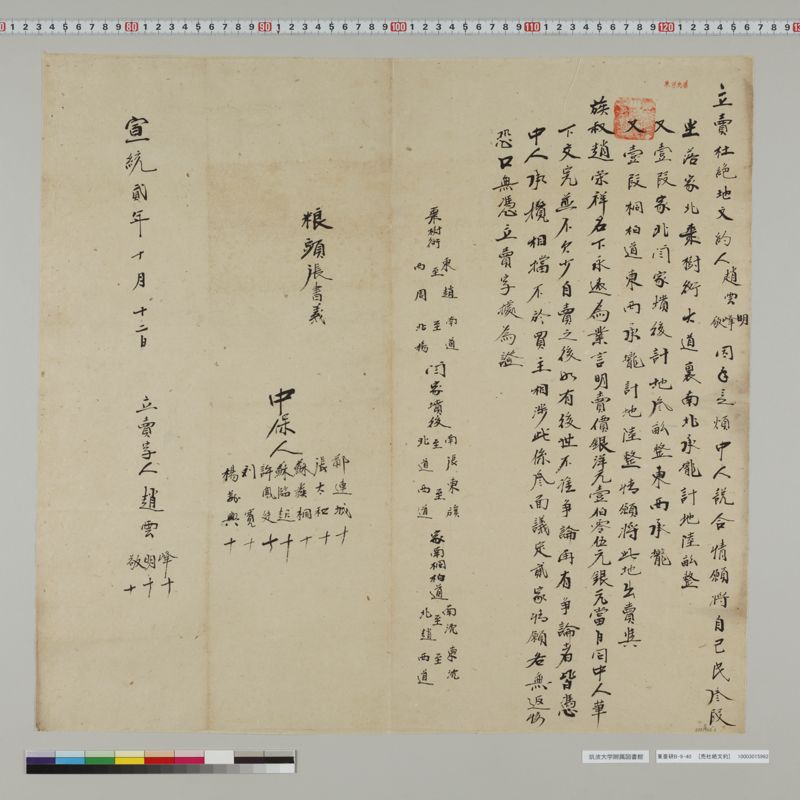 立賣杜絕地文約人趙雲明峰敬因手乏煩中人說合情願將自己民地叁段
坐落家北栗樹衖大道裏南北承壠計地陸畝整
又壹段家北閆家墳後計地叁畝整東西承壠
又壹段桐柏道東西承壠計地陸整情願將此地出賣與
族叔趙崇祥名下永遠為業言明賣價銀洋元壹伯零伍元銀元當日同中人葦
下交完並不欠少自賣之後如有後世不准爭論再有爭論者皆憑
中人承攬相擋不於買主相涉此係叁面議定貳家情願各無返悔
恐口無憑立賣字據為證
栗樹衖 東至趙 南至道 西周 北楊
閆家墳後 南至張 東至旗 北道 西道
家南桐柏道 南至沈 東至沈 北趙 西道
粮頭張書義
中保人
鄭連城十
張大和十
蘇義桐十
蘇臨起十
許鳳
劉賓十
楊敬興十
宣統貳年十月十二日
立賣字人趙雲峰十明十敬十
筑波大学附属図書館
[売杜絶文約] 10003015992